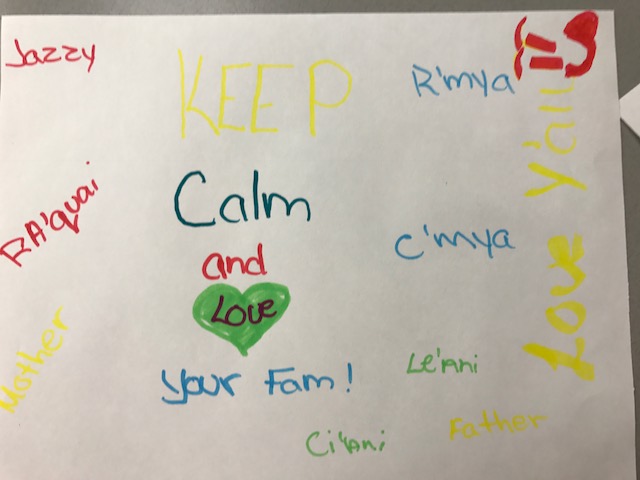 Jazzy
KEEP
R'mya
Calm
RA'quai
and
C'mya
Love
Mother
your Fam!
Le'Ani
Father
Ci'Ani
Love Y'all